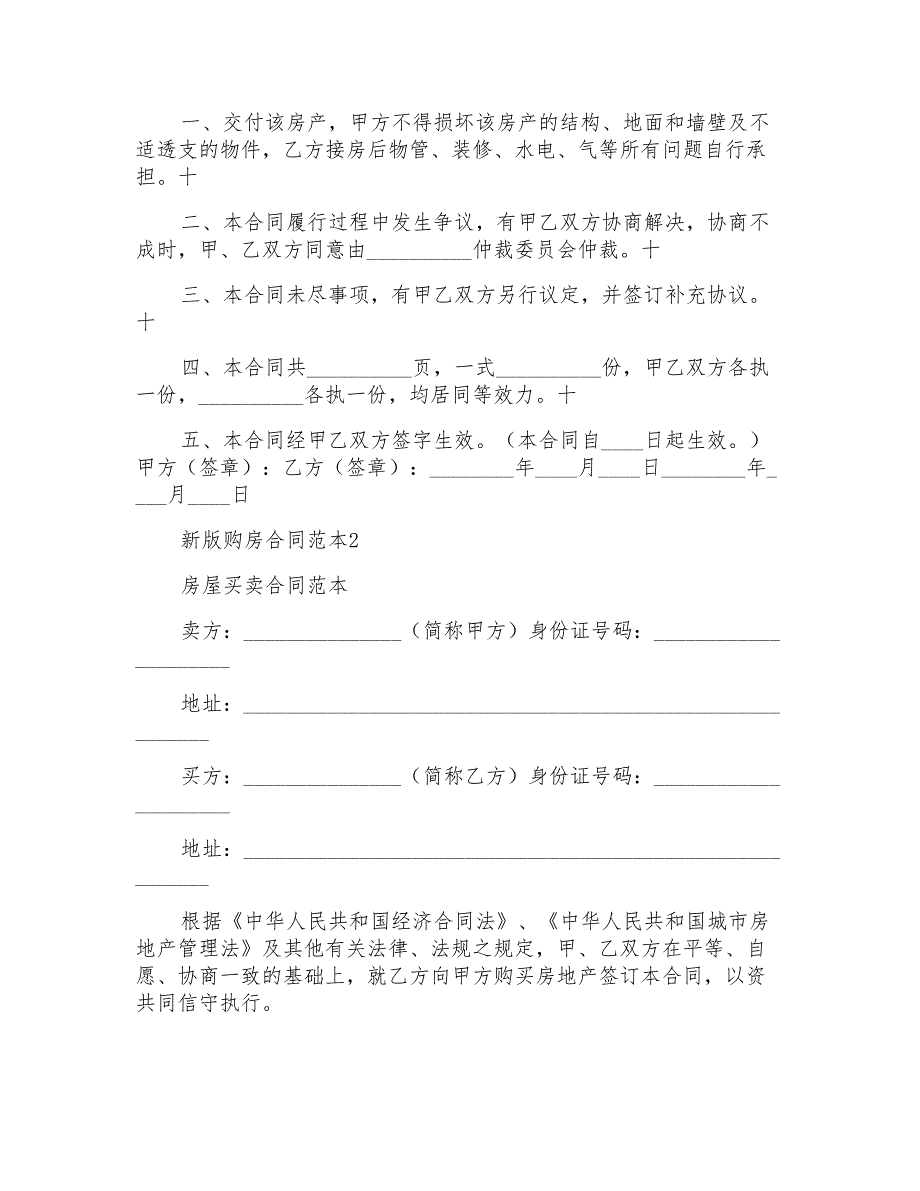 一、交付该房产，甲方不得损坏该房产的结构、地面和墙壁及不
适透支的物件，乙方接房后物管、装修、水电、气等所有问题自行承
担。十
二、本合同履行过程中发生争议，有甲乙双方协商解决，协商不
成时，甲、乙双方同意由__________仲裁委员会仲裁。十
三、本合同未尽事项，有甲乙双方另行议定，并签订补充协议。
十
四、本合同共__________页，一式__________份，甲乙双方各执
一份，__________各执一份，均居同等效力。十
五、本合同经甲乙双方签字生效。（本合同自____日起生效。）
甲方（签章）：乙方（签章）：________年____月____日________年_
___月____日
新版购房合同范本2
房屋买卖合同范本
卖方：_______________（简称甲方）身份证号码：____________
_________
地址：___________________________________________________
_______
买方：_______________（简称乙方）身份证号码：____________
_________
地址：___________________________________________________
_______
根据《中华人民共和国经济合同法》、《中华人民共和国城市房
地产管理法》及其他有关法律、法规之规定，甲、乙双方在平等、自
愿、协商一致的基础上，就乙方向甲方购买房地产签订本合同，以资
共同信守执行。